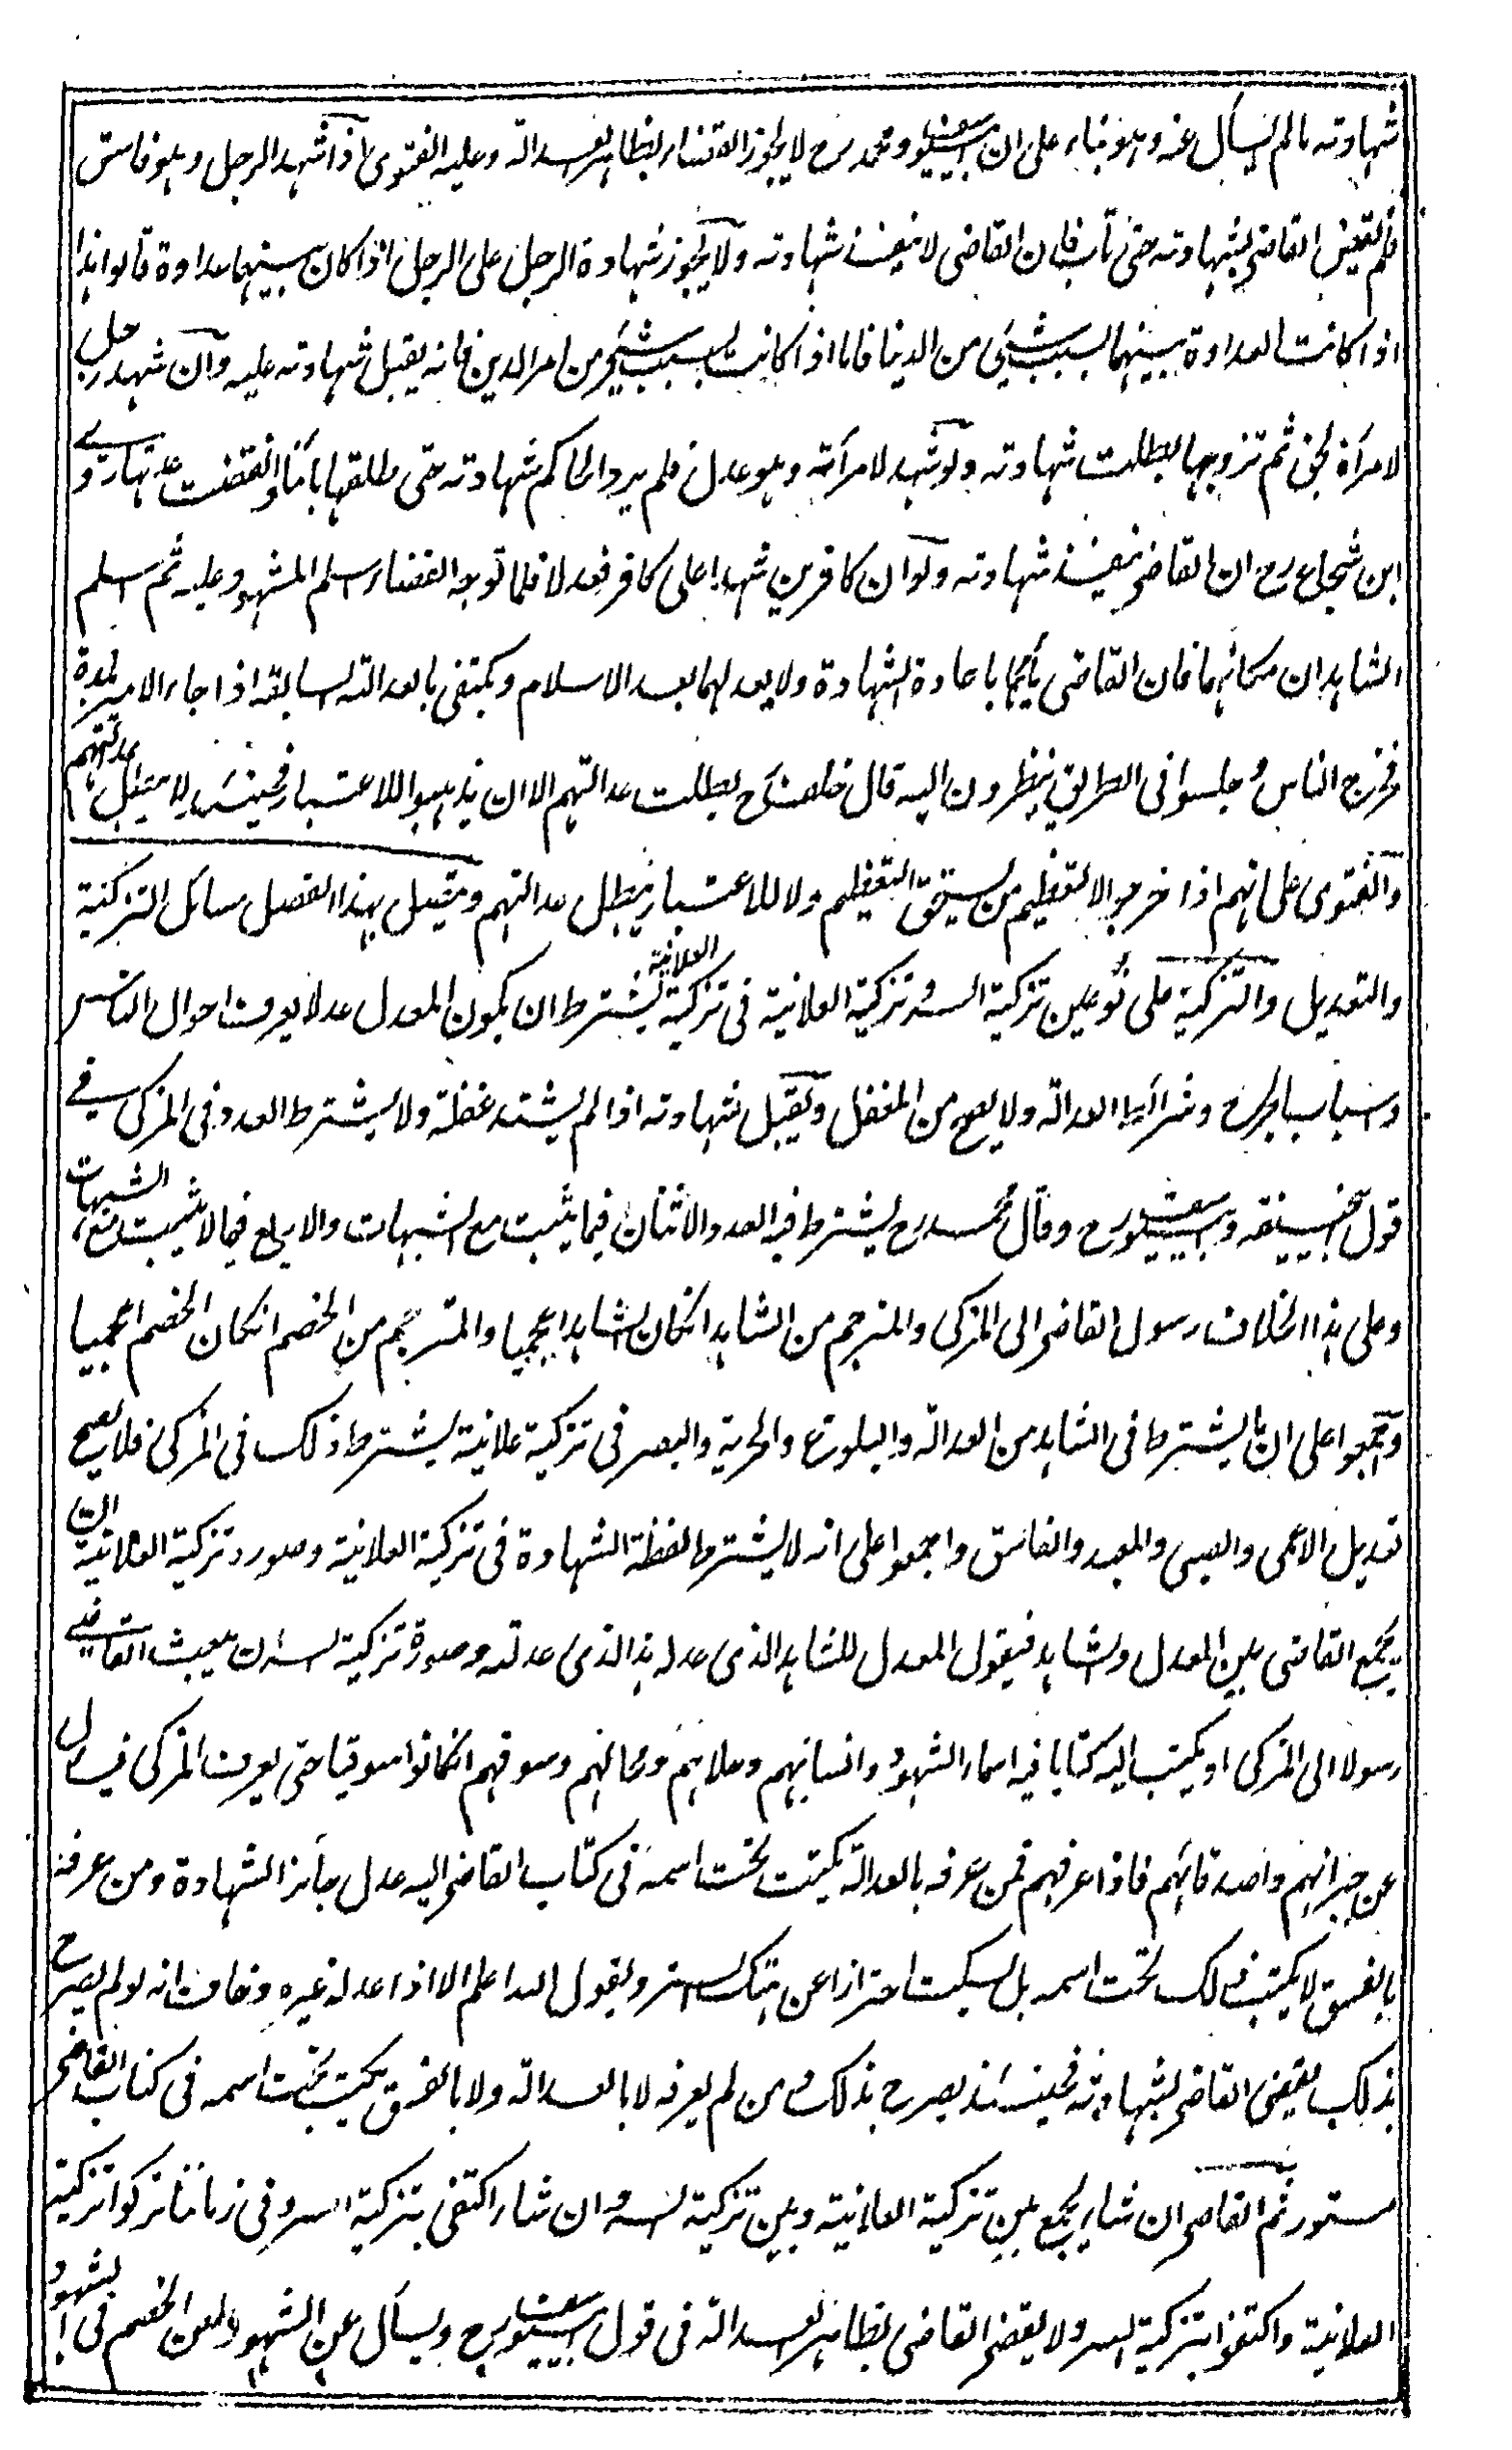 شهادته مالم يسأل عنه وهو بناء على ان عند ابييوسف ومحمد رح لا يجوز القضاء بظاهر العدالة وعليه الفتوى اذا شهد الرجل وهو فاسق
فلم يقض القاضى بشهادته حتى تاب فان القاضى لا ينفذ شهادته ولا يجوز شهادة الرجل على الرجل اذا كان بينهما عداوة قالوا هذا
اذا كانت العداوة بينهما بسبب شئ من الدنيا فاما اذا كانت بسبب شئ من امر الدين فانه يقبل شهادته عليه وان شهد رجل
لامرأة بحق ثم تزوجها بطلت شهادته ولو شهد لامرأته وهو عدل فلم يرد الحاكم شهادته حتى طلقها بائنا وانقضت عدتها روى
ابن شجاع رح ان القاضى ينفذ شهادته ولو ان كافرين شهدا على كافر فعدلا فلما توجه القضاء اسلم المشهود عليه ثم اسلم
الشاهدان مكانهما فان القاضى يأمرهما باعادة الشهادة ولا يعدلهما بعد الاسلام ويكتفى بالعدالة السابقة اذا جاء الامير بلدة
فخرج الناس وجلسوا فى الطريق ينظرون اليه قال خلف رح بطلت عدالتهم الا ان يذهبوا للاعتبار فحينئذ لا يبطل عدالتهم
والفتوى على انهم اذا خرجوا لا لتعظيم من يستحق التعظيم ولا للاعتبار يبطل عدالتهم ويتصل بهذا الفصل مسائل التزكية
والتعديل والتزكية على نوعين تزكية السر وتزكية العلانية فى تزكية العلانية يشترط ان يكون المعدل عدلا يعرف احوال الناس
واسباب الجرح وشرائط العدالة ولا يصح من المغفل ويقبل شهادته اذا لم يشتد غفلة ولا يشترط العدد فى المزكى فى
قول ابيحنيفة وابييوسف رح وقال محمد رح يشترط فيه العدد والاثنان فيما يثبت مع الشبهات والاربع فيما لا يثبت مع الشبهات
وعلى هذا الخلاف رسول القاضى الى المزكى والمترجم من الشاهد انكان الشاهد اعجميا والمترجم من الخصم انكان الخصم اعجميا
واجمعوا على ان ما يشترط فى الشاهد من العدالة والبلوغ والحرية والبصر فى تزكية علانية يشترط ذلك فى المزكى فلا يصح
تعديل الاعمى والصبى والعبد والفاسق واجمعوا على انه لا يشترط لفظة الشهادة فى تزكية العلانية وصورة تزكية العلانية ان
يجمع القاضى بين المعدل والشاهد فيقول المعدل للشاهد الذى عدله هذا الذى عدلته وصورة تزكية السر ان يبعث القاضى
رسولا الى المزكى او يكتب اليه كتابا فيه اسماء الشهود وانسابهم وحلاهم ومحالهم وسوقهم انكانوا سوقيا حتى يعرف المزكى فيسأل
عن جيرانهم واصدقائهم فاذا عرفهم فمن عرفه بالعدالة يكتب تحت اسمه فى كتاب القاضى اليه عدل جائز الشهادة ومن عرفه
بالفسق لا يكتب ذلك تحت اسمه بل يسكت احترازا عن هتك الستر ويقول الله اعلم الا اذا عدله غيره وخاف انه لو لم يصرح
بذلك يقضى القاضى بشهادته فحينئذ يصرح بذلك ومن لم يعرفه لا بالعدالة ولا بالفسق يكتب تحت اسمه فى كتاب القاضى
مستور ثم القاضى ان شاء يجمع بين تزكية العلانية وبين تزكية السر وان شاء اكتفى بتزكية السر وفى زماننا تركوا تزكية
العلانية واكتفوا بتزكية السر ولا يقضى القاضى بظاهر العدالة فى قول ابييوسف رح ويسأل عن الشهود طعن الخصم فى الشهود